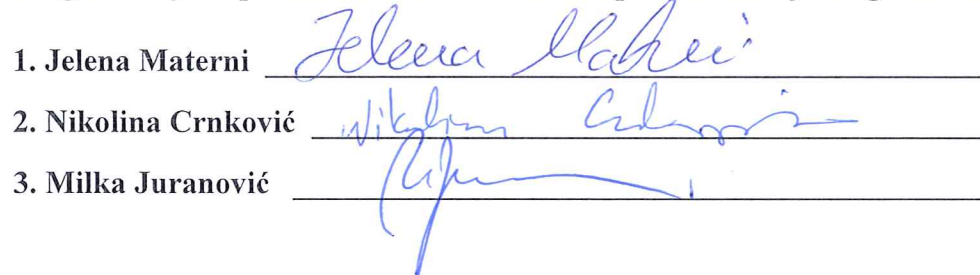 1. Jelena Materni Jelena Materni
2. Nikolina Crnković Nikolina Crnković
3. Milka Juranović